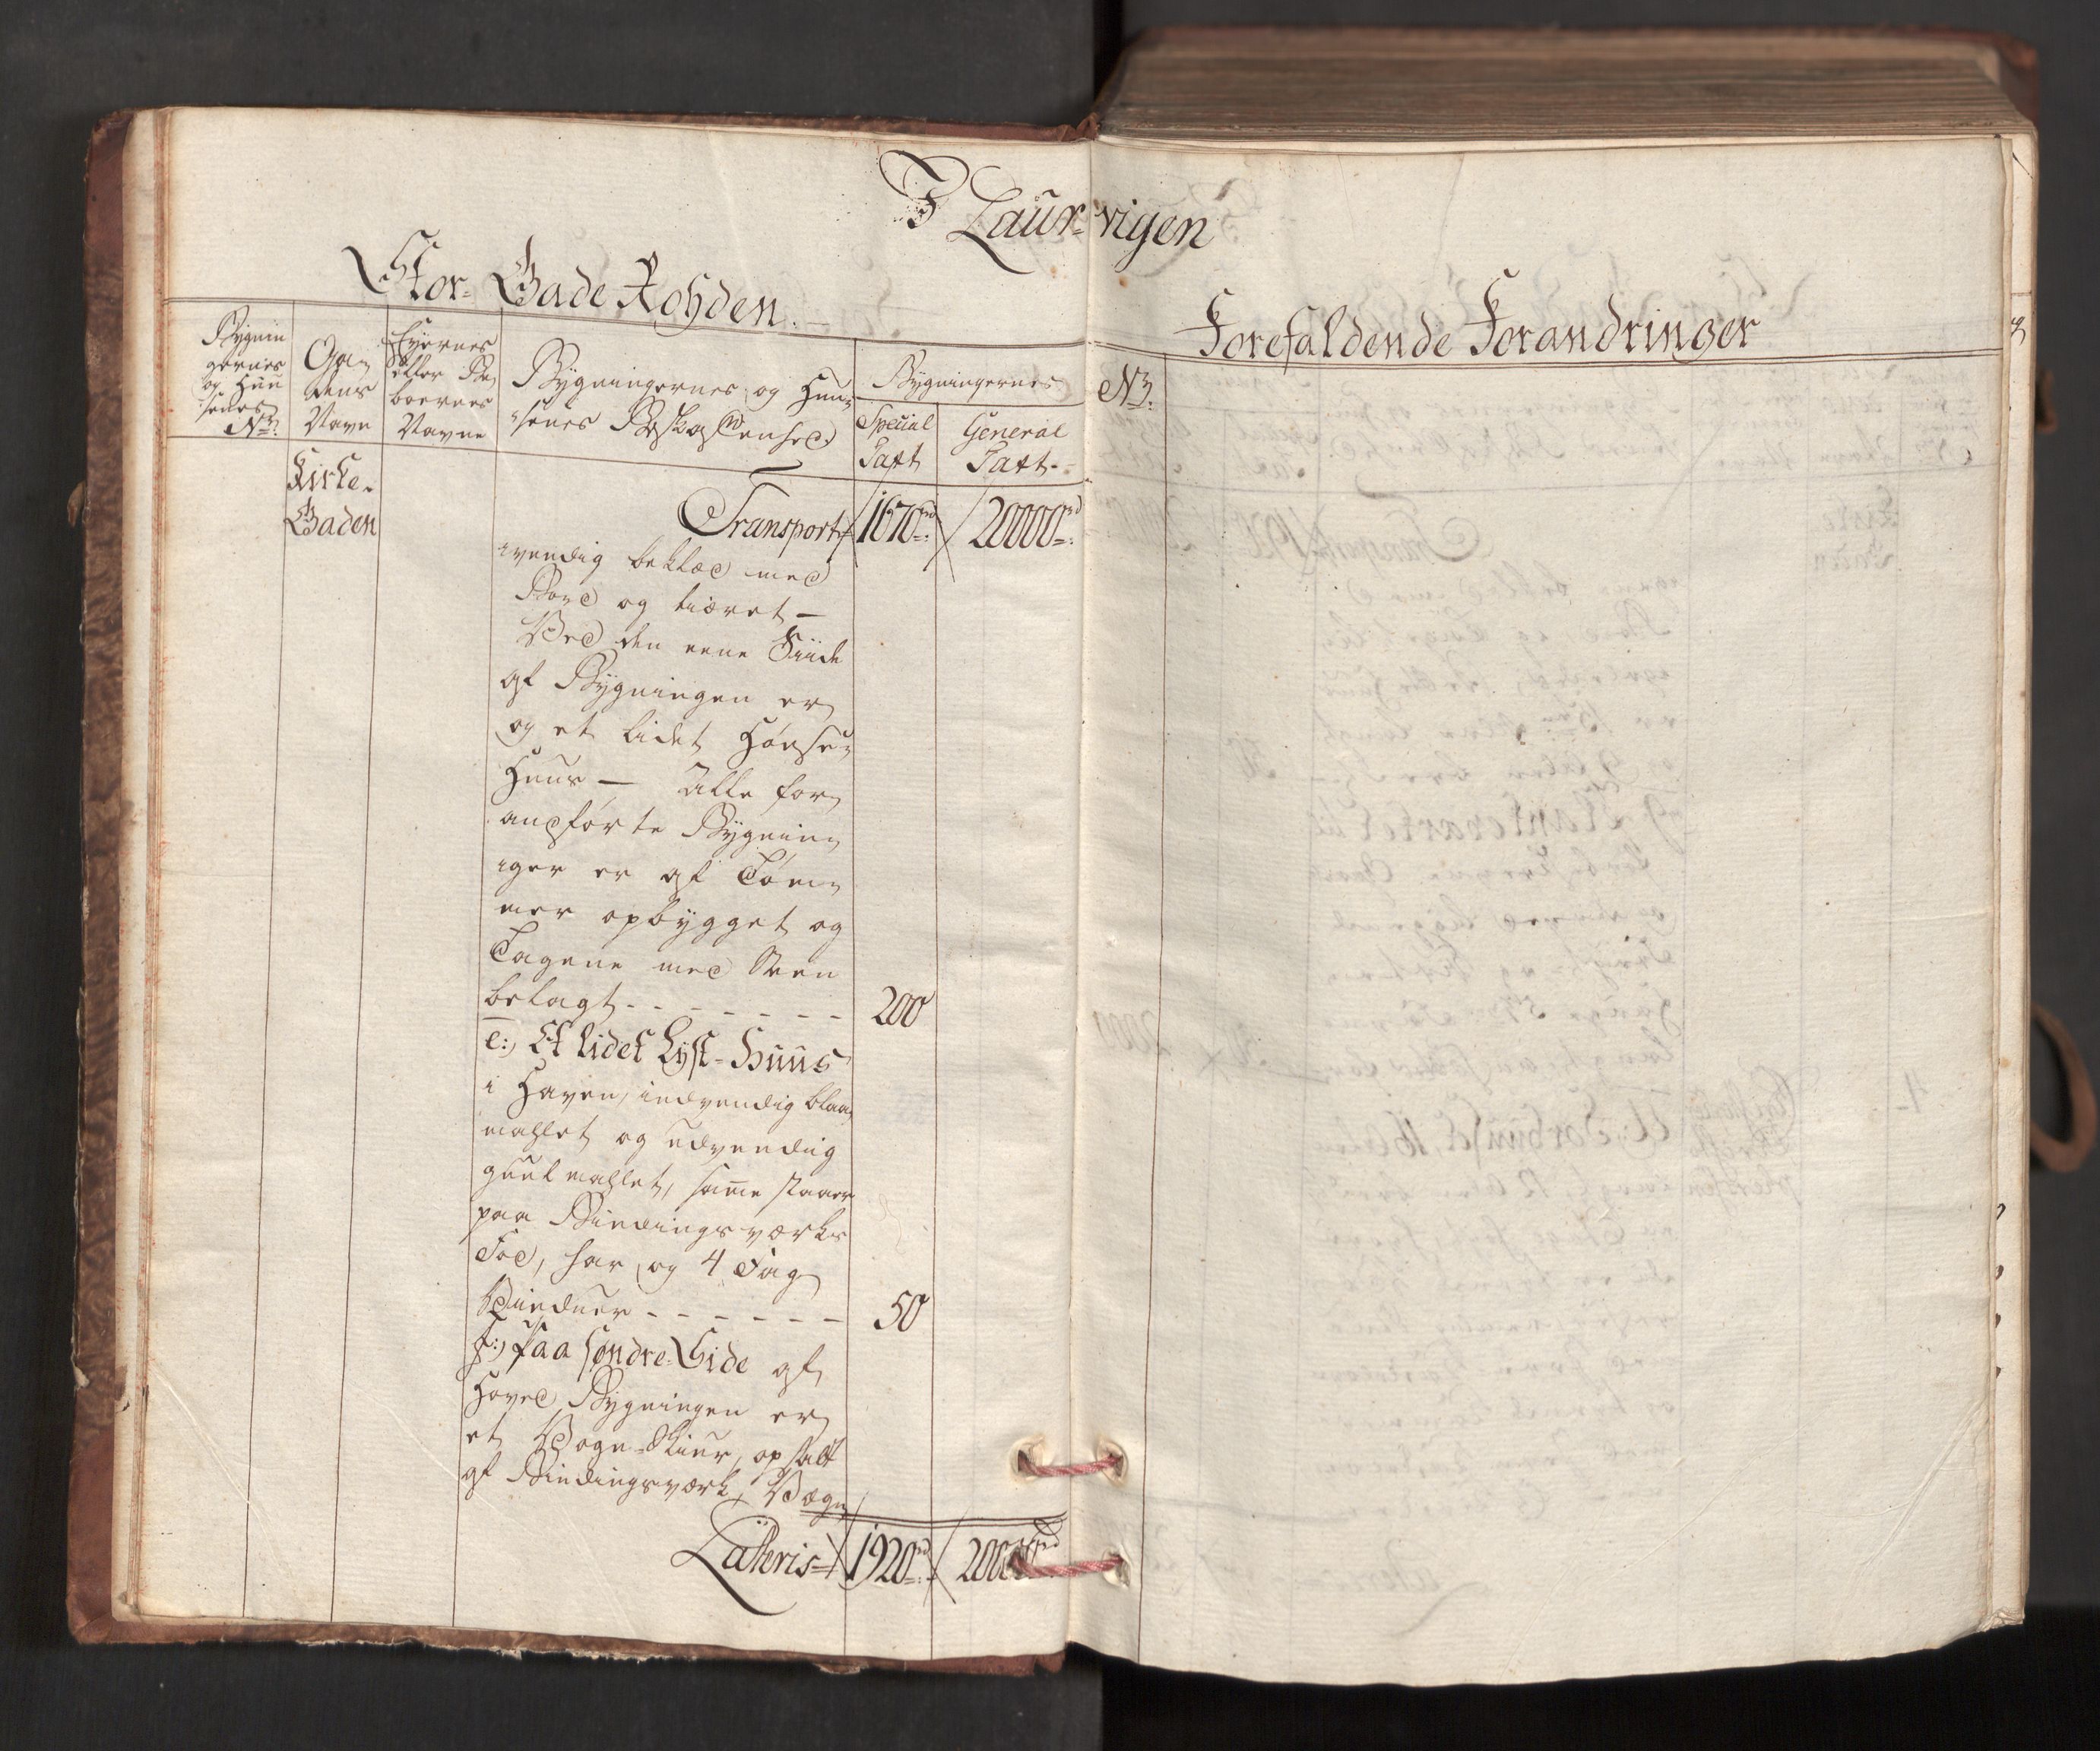 I Laur-vigen
Stor-Gade Rohden.
Forefaldende Forandringer
Bygnin
gernes
og Huu
senes
No.
Ga-
dens
Navn
Eyernes
eller Be
boernes
Navne
Bygningernes og Huu-
senes Beskaffenhed
Bygningernes
Special
Taxt
General
Taxt
No.
Kirke-
Gaden
Transport 1670rd 20000rd
vendig beklæd med
Bord og tiæret -
Ved den eene Siide
af Bygningen er
og et lidet Hønse-
Huus - Alle for-
anførte Bygnin-
ger er af Tøm-
mer opbygget og
Tagene med Steen
belagt - - - - - - - 200
e:) Et lidet Lyst-Huus
i Haven, indvendig blaa-
mahlet og udvendig
guul mahlet, samme staaer
paa Bindingsværks
Fod, har og 4 Fag
Vinduer - - - - - - 50
f:) Paa Søndre Side af
Hoved Bygningen er
et Vogn-Skiur, opsatt
af Bindingsværk, Vægn
Lateris 1920rd 20000rd